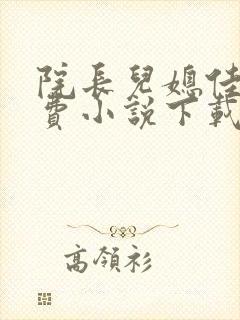 院長兒媳佳
費小說下載
高領衫